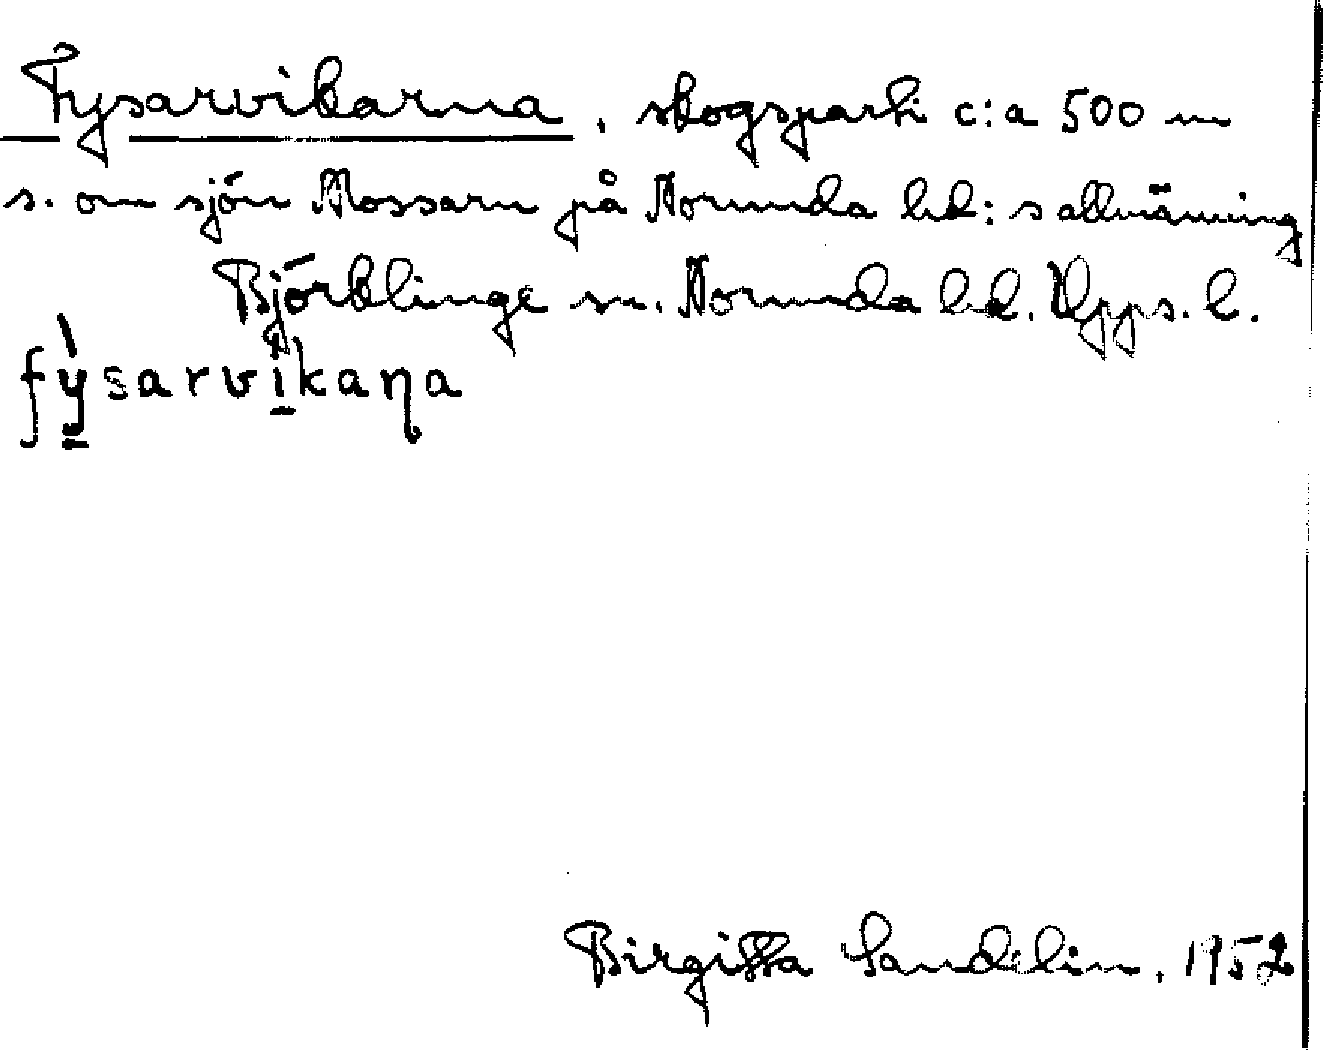 Fysarvikarna, skogsparti c:a 500 m
s. om sjön Mossarn på Norunda hd:s allmänning
Björklinge sn. Norunda hd. Upps. l.
fỳ̱sarvì̱kaꞃa
Birgitta Sandelin, 1952